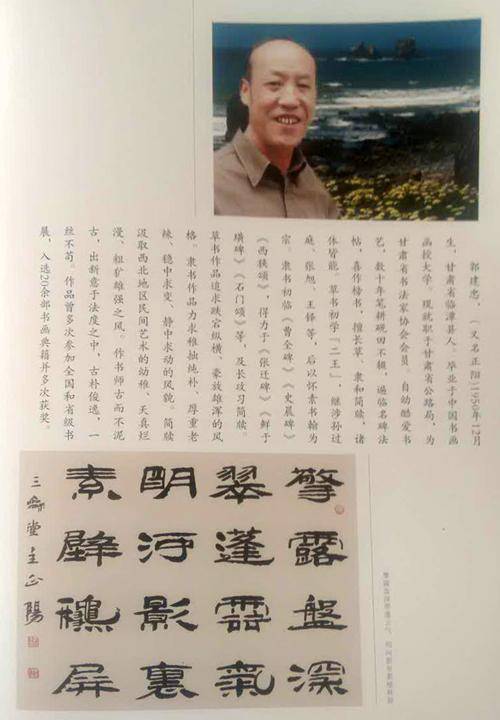 郭建忠，（又名正阳）1950年12月
生，甘肃省临潭县人。毕业于中国书画
函授大学，现就职于甘肃省公路局，为
甘肃省书法家协会会员。自幼酷爱书
艺，数十年笔耕砚田不辍，遍临名碑法
帖，喜作榜书，擅长草、隶和简牍，诸
体皆能。草书初学「二王」，继涉孙过
庭、张旭、王铎等，后以怀素书翰为
宗。隶书初临《曹全碑》《史晨碑》
《西狭颂》，得力于《张迁碑》《鲜于
璜碑》《石门颂》等，及长攻习简牍。
草书作品追求跌宕纵横、豪放雄浑的风
格。隶书作品力求稚拙纯朴、厚重老
辣、稳中求变、静中求动的风貌。简牍
汲取西北地区民间艺术的幼稚、天真烂
漫、粗犷雄强之风。作书师古而不泥
古，出新意于法度之中，古朴俊逸，一
丝不苟。作品曾多次参加全国和省级书
展，入选20余部书画典籍并多次获奖。
擎露盘深
翠蓬雲氣
明河影裏
素壁穐屏
三堂主正陽
擎露盘深翠蓬云气，明河影里素壁秋屏